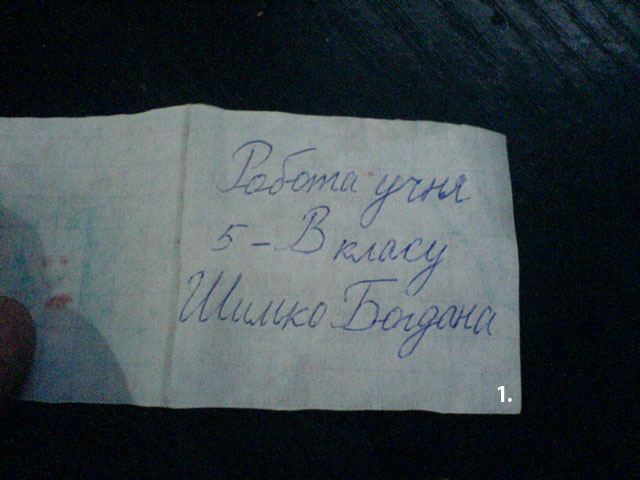 Робота учня
5-В класу
Шимко Богдана
1.